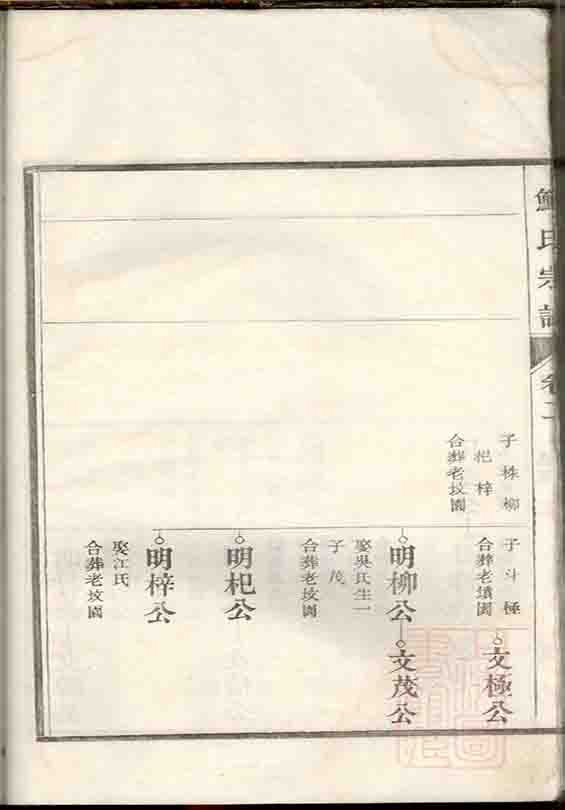 氏宗譜
卷二
子株柳
杞梓
合葬老坟園
子斗極
合葬老墳園
文極公
明柳公
文茂公
娶吳氏生一
子茂
合葬老坟園
明杞公
明梓公
娶江氏
合葬老坟園